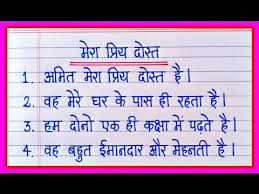 मेरा प्रिय दोस्त
1. अमित मेरा प्रिय दोस्त है।
2. वह मेरे घर के पास ही रहता है।
3. हम दोनो एक ही कक्षा में पढ़ते है।
4. वह बहुत ईमानदार और मेहनती है।